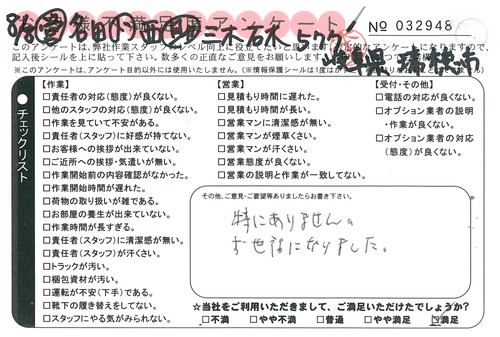 お客様不満足度アンケート
No 032948
このアンケートは、弊社作業スタッフのレベル向上に役立てたいと思いますので、定期的なアンケートになりますので、
記入後シールを上に貼って下さい。数多くの正直なご意見をお願いします。
岐阜県 瑞穂市
チェックリスト
【作業】
□責任者の対応(態度)が良くない。
□他のスタッフの対応(態度)が良くない。
□作業を見ていて不安がある。
□責任者(スタッフ)に好感が持てない。
□お客様への挨拶が出来ていない。
□ご近所への挨拶・気遣いが無い。
□作業開始前の内容確認がなかった。
□作業開始時間が遅れた。
□荷物の取り扱いが雑である。
□お部屋の養生が出来ていない。
□作業時間が長すぎる。
□責任者(スタッフ)に清潔感が無い。
□責任者(スタッフ)が汗くさい。
□トラックが汚い。
□梱包資材が汚い。
□運転が不安(下手)である。
□靴下の履き替えをしてない。
□スタッフにやる気がみられない。
【営業】
□見積もり時間に遅れた。
□見積もり時間が長い。
□営業マンに清潔感が無い。
□営業マンが煙草くさい。
□営業マンが汗くさい。
□営業態度が良くない。
□営業の説明と作業が一致してない。
【受付・その他】
□電話の対応が良くない。
□オプション業者の説明
・作業が良くない。
□オプション業者の対応
(態度)が良くない。
その他、ご意見・ご要望等ありましたらお書き下さい。
特にありません。
お世話になりました。
☆当社をご利用いただきまして、ご満足いただけたでしょうか?
□不満 □やや不満 □普通 □やや満足 ☑満足